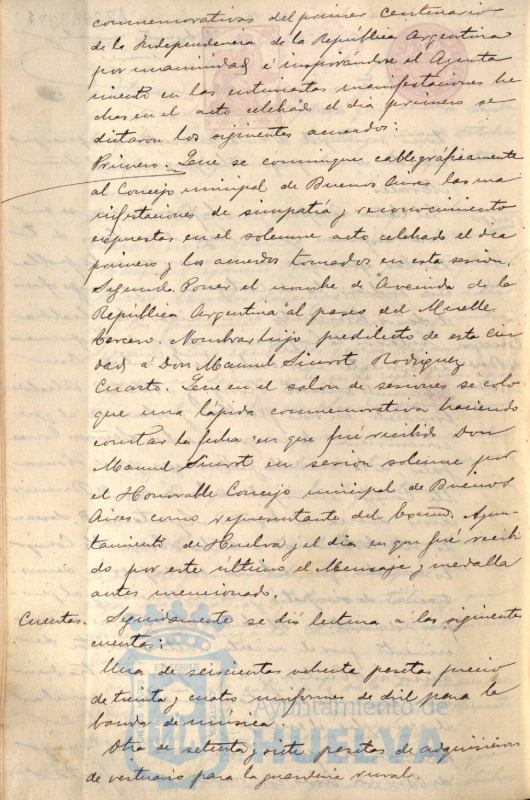 conmemorativas del primer Centenario
de la Independencia de la República Argentina
por unanimidad é inspirándose el Ayunta
miento en las entusiastas manifestaciones he
chas en el acto celebrado el dia primero se
dictaron los siguientes acuerdos:
Primero. Que se comunique cablegráficamente
al Concejo municipal de Buenos Aires las ma
nifestaciones de simpatía y reconocimiento
expuestas en el solemne acto celebrado el dia
primero y los acuerdos tomados en esta sesion.
Segundo. Poner el nombre de "Avenida de la
República Argentina" al paseo del Muelle
Tercero. Nombrar hijo predilecto de esta ciu
dad á Don Manuel Siurot Rodriguez
Cuarto. Que en el salon de sesiones se colo
que una lápida conmemorativa haciendo
constar la fecha en que fué recibido Don
Manuel Siurot en sesion solemne por
el Honorable Concejo municipal de Buenos
Aires como representante del Excmo. Ayun-
tamiento de Huelva y el dia en que fué recibi
do por este último el Mensaje y medalla
antes mencionado.
Cuentas. Seguidamente se dió lectura á las siguientes
cuentas:
Una de seiscientas ochenta pesetas precio
de treinta y cuatro uniformes de dril para la
banda de música.
Otra de setenta y siete pesetas de adquisicion
de vestuario para la guarderia rural.
Ayuntamiento de
HUELVA